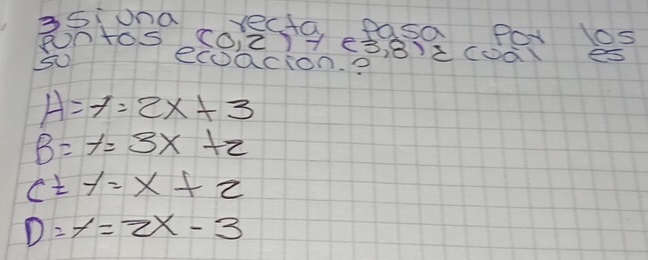 3 si una recta pasa por los
puntos (0,2) y (3,8) ¿ coal es
su ecuacion.?
A= y= 2x + 3
B= y= 3x + 2
C= y= x + 2
D= y= 2x - 3